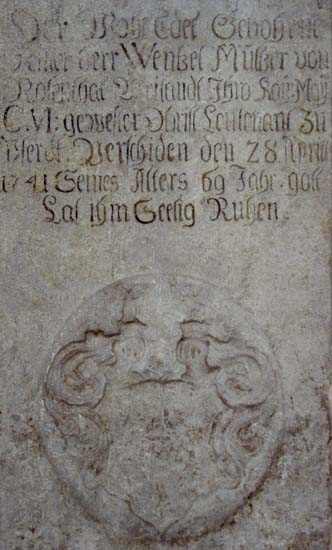 Der Wohl Edel Gebohrne
Herr Herr Wenßel Müller von
Rosenthal Weilandt Ihro Kay: May:
C.VI: gewester Obrist Leutenant zu
Pferdt. Verschiden den 28 Aprill
1741 Seines Alters 69 Jahr. gott
Las ihm Seelig Ruhen.